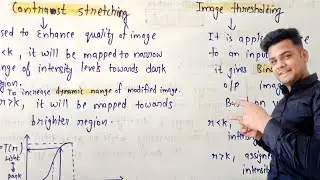 Contrast stretching
used to Enhance quality of image
<k, it will be mapped to narrow
range of intensity levels towards dark
region.
To increase dynamic range of modified image.
r>k, it will be mapped towards
brighter region.
T(r)
light
dark
Image thresholding
It is applic
to an input
it gives Bin
o/p image
Ba
r<k
inten
r>k, assigne
intensi